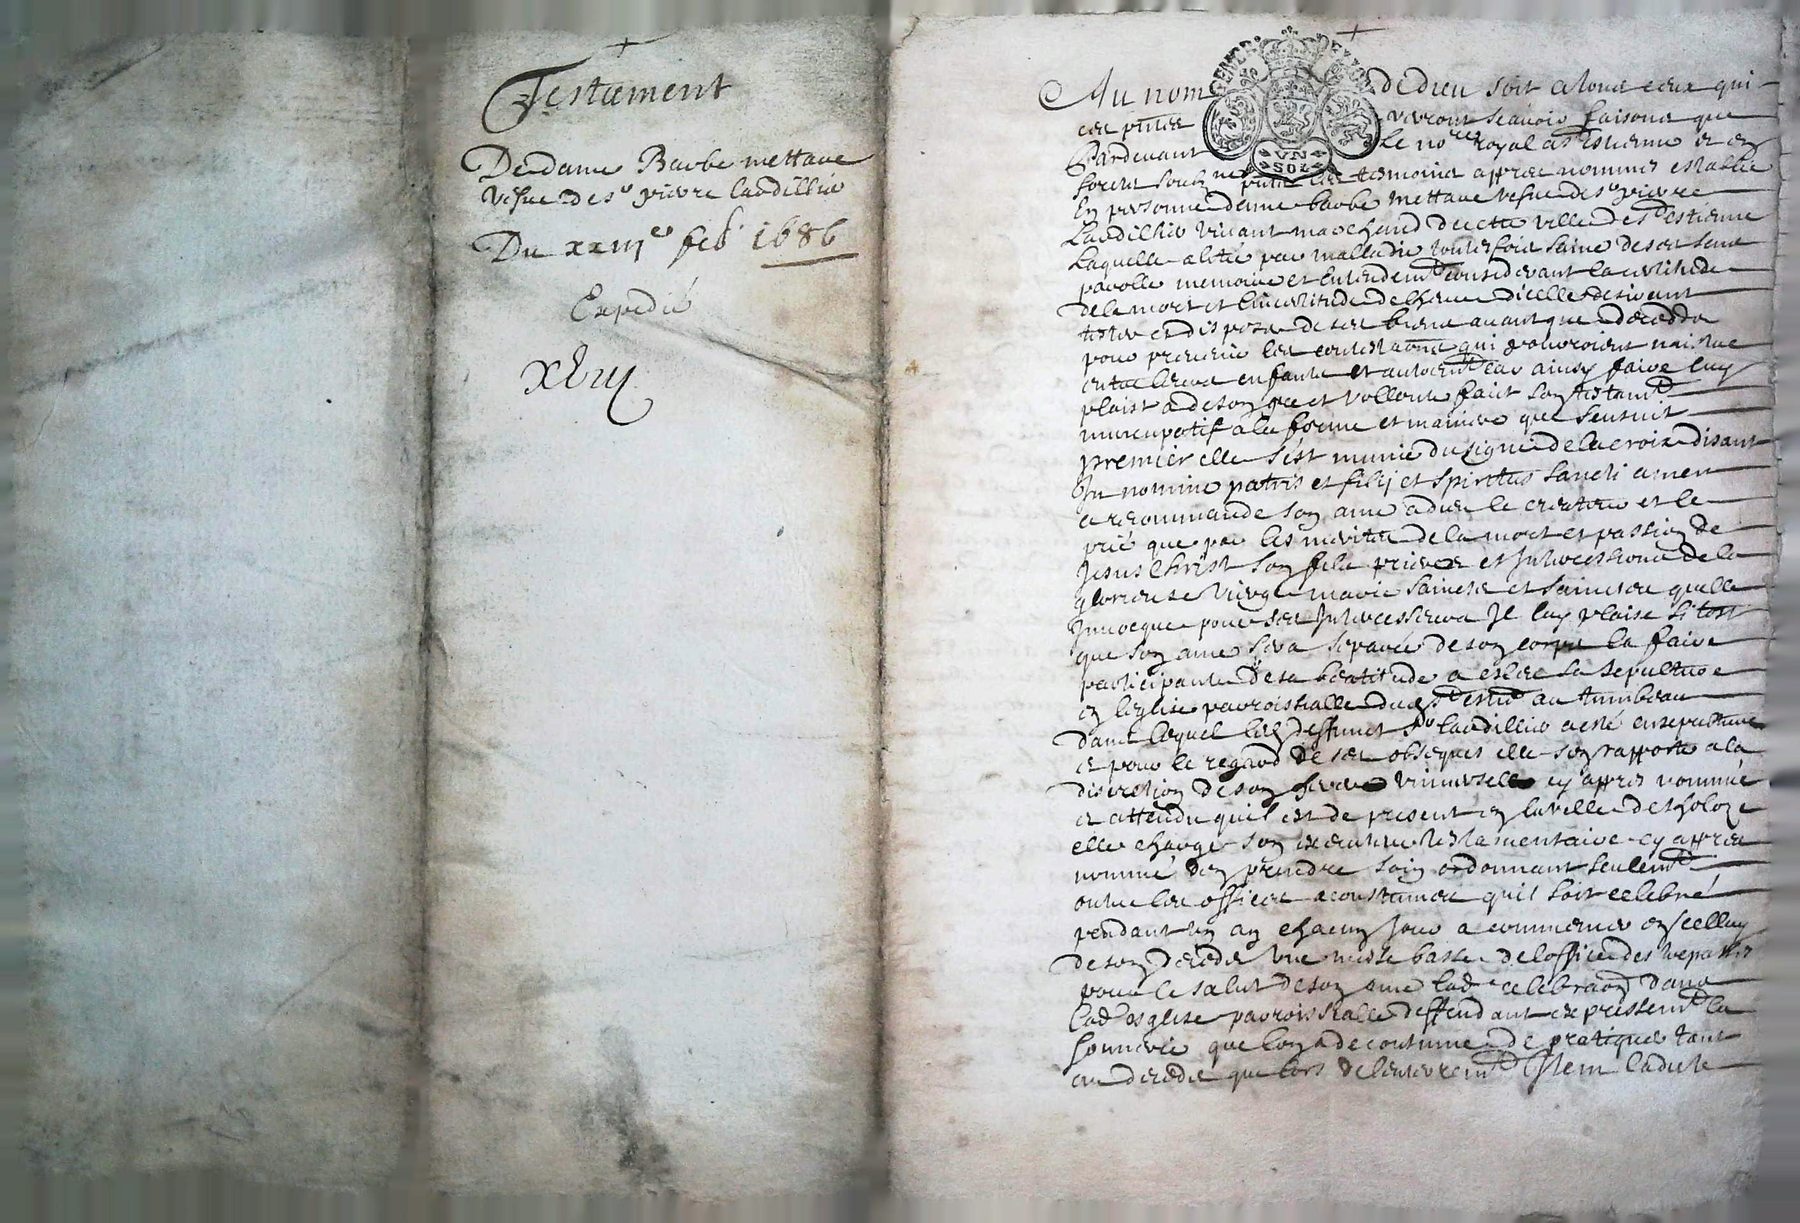 Testament
De dame Barbe mettare
vefve de sr pierre lardillier
Du xxiiie feb 1686
Expedié
xlvij
Au nom de dieu soit a tous ceux qui
ces pntes verront scavoir faisons que
Pardevant le nore royal a st estienne et en
forestz soubzne pntz les tesmoins appres nommes establie
En personne dame barbe mettare vefve de sr pierre
Lardillier vivant marchand de cette ville de st estienne
Laquelle alitée par malladie toutesfois saine de ses sens
parolle memoire et Entendemt considerant la certitude
de la mort et lincertitude de lheure dicelle desirant
tester et disposer de ses biens avant que decedder
pour prevenir les contestaons qui pourroient naistre
entre leurs enfants et autremt car ainsy faire luy
plaist a de son gre et vollonte faict son testamt
nuncupatif a la forme et maniere que sensuit
premier elle sést munie du signe de la croix disant
In nomine patris et filij et spiritus sancti amen
a recommandé son ame a dieu le createur et le
prié que par les merites de la mort et passion de
Jesus Christ son fils prieres et Intercessions de la
glorieuse vierge marie saincts et sainctes quelle
Invocque pour ses Intercesseurs Il luy plaise si tost
que son ame sera separée de son corps la faire
participante de sa beatitude a esleu sa sepulture
en leglise parroissialle dud st estie au tumbeau
dans lequel led deffunct sr lardillier a esté ensepulturé
et pour le regard de ses obseques elle sen rapporte a la
discretion de son heritier universelle cy appres nommé
et attendu quil est de present en la ville de tholoze
elle charge son executeur testamentaire cy appres
nommé den prendre soin ordonnant seulemt
outre les offices acoustumes quil soit celebré
pendant un an chacun jour a commencer en celluy
de son decedz une messe basse de loffice des trepassés
pour le salut de son ame lade celebraon dans
lade esglise parroissialle deffendant expressemt la
sonnerie que lon a de coutume de pratiquer tant
au decedz que lors de lenterremt Item ladite